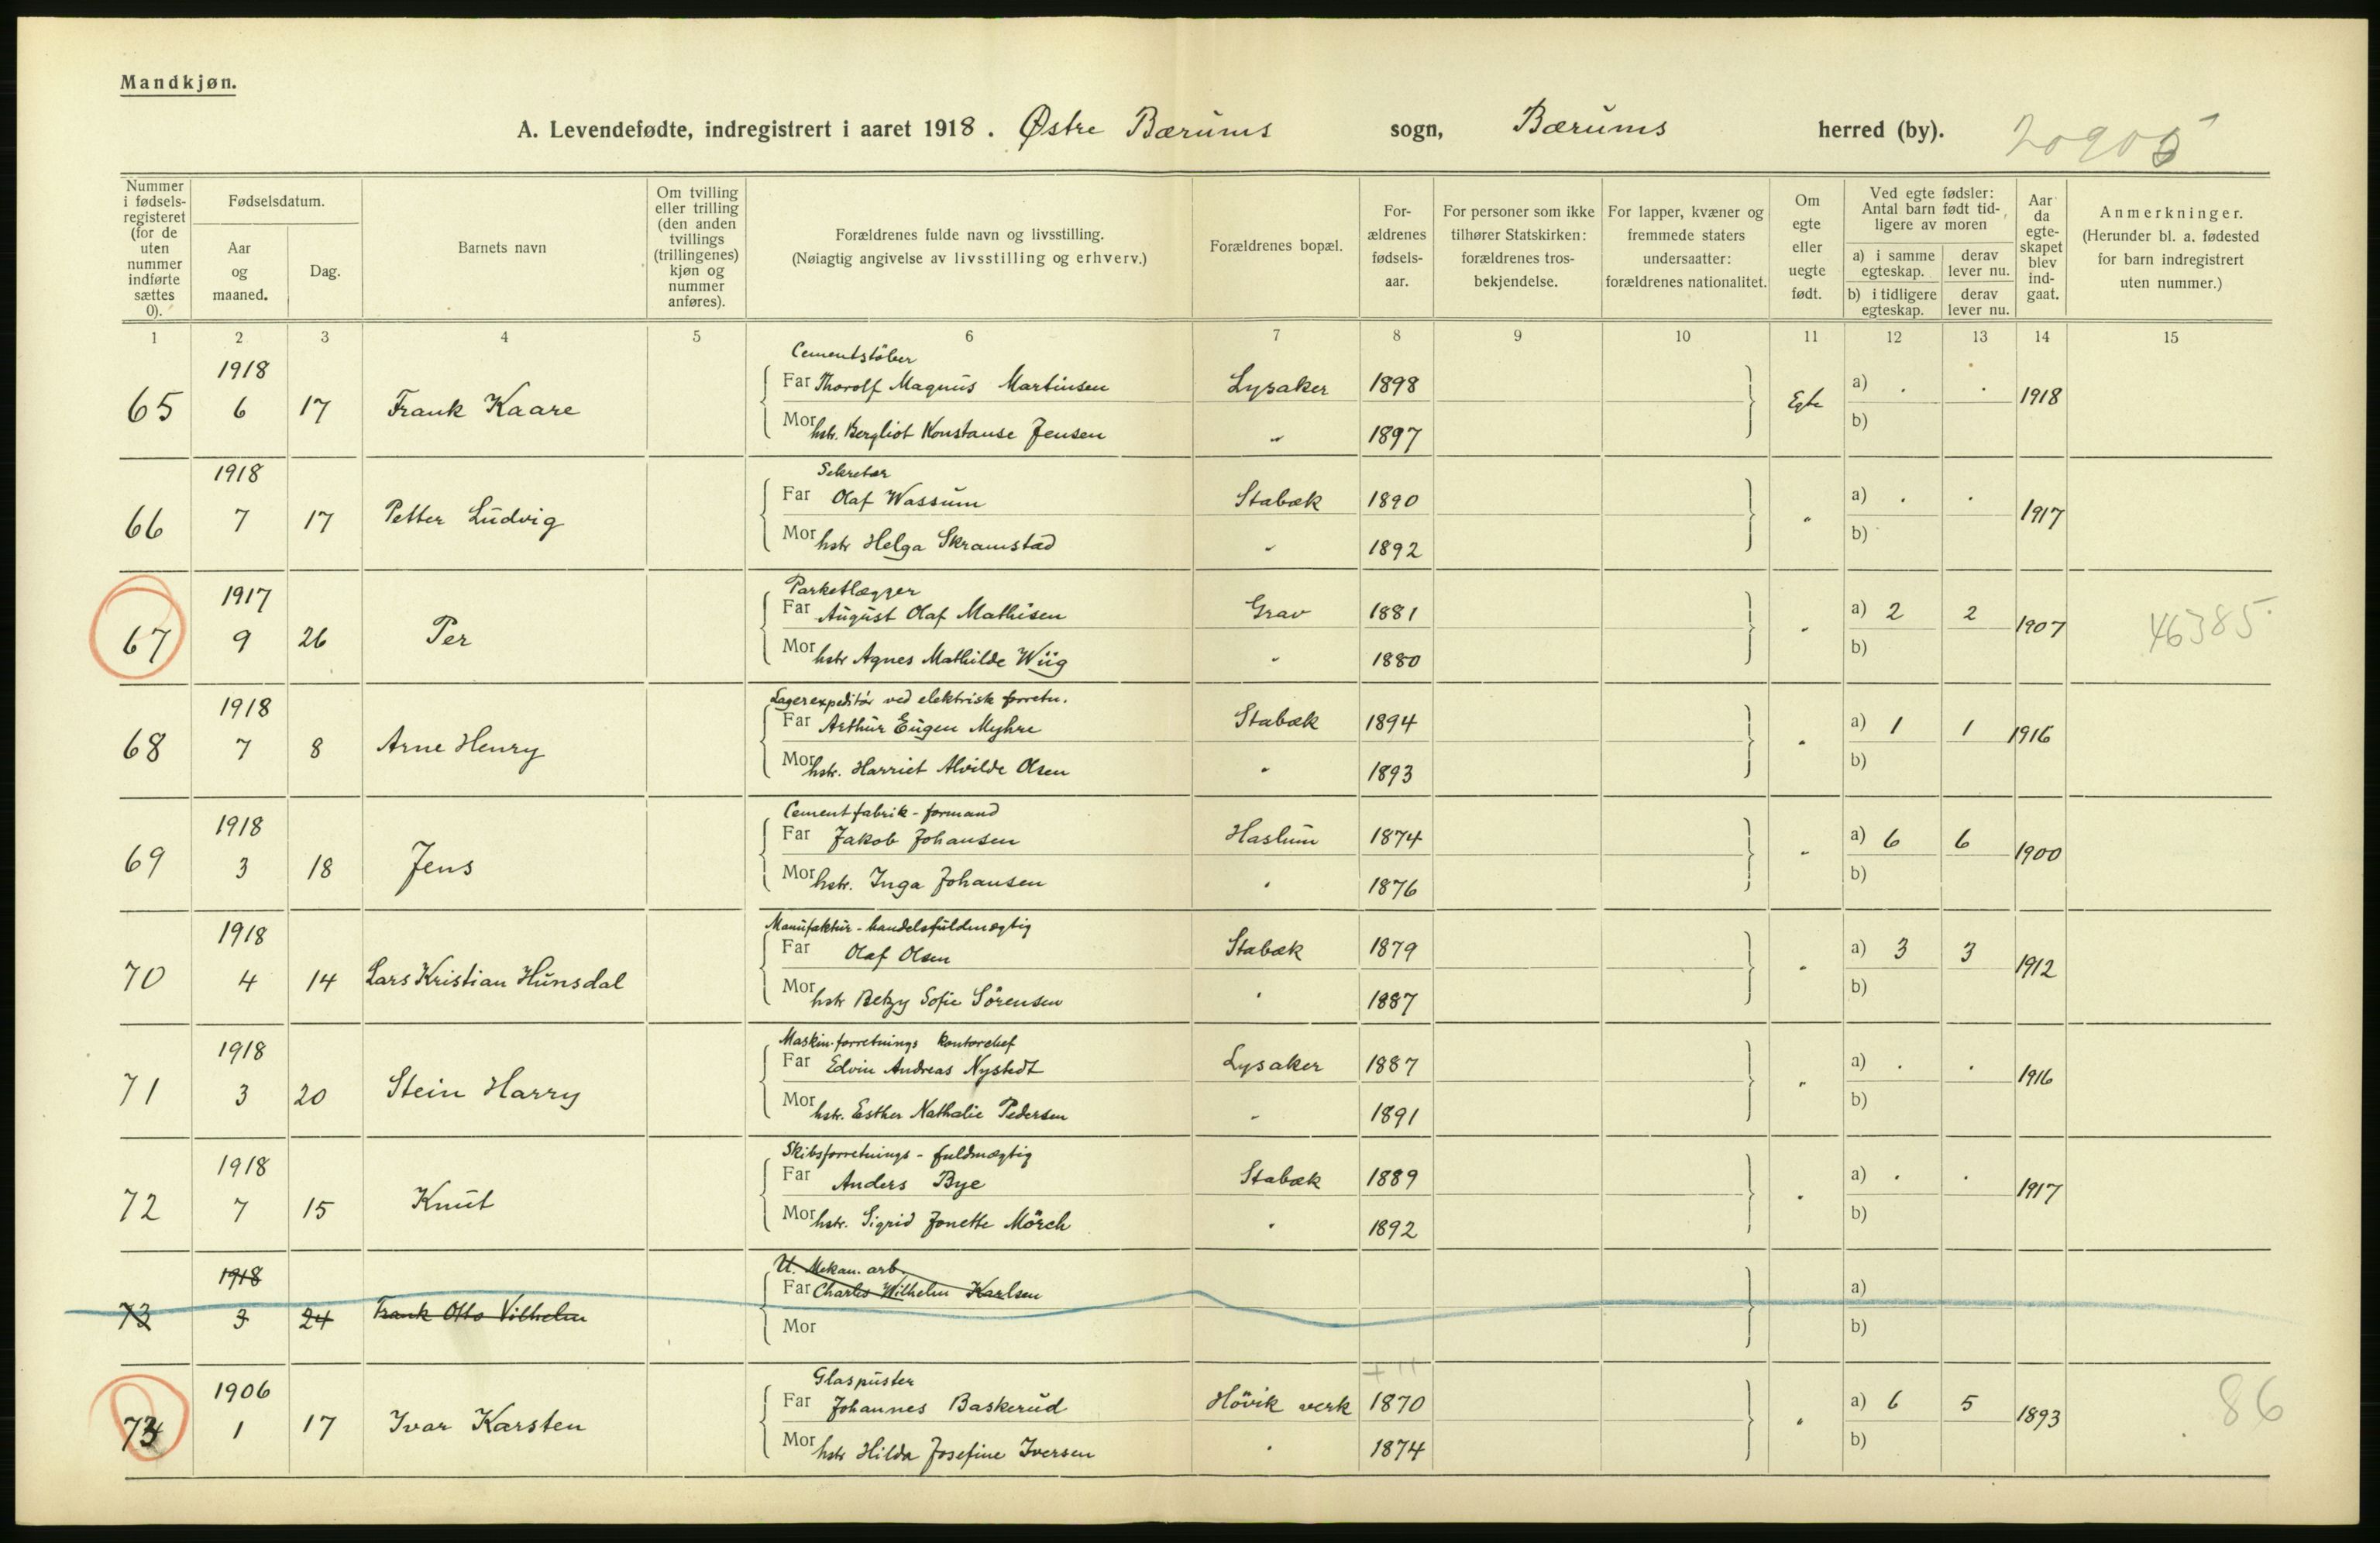 Mandkjøn.
A. Levendefødte, indregistrert i aaret 1918. Østre Bærums sogn, Bærums herred (by). 20905
Nummer i fødselsregisteret (for de uten nummer indførte sættes 0).
Fødselsdatum.
Aar og maaned.
Dag.
Barnets navn
Om tvilling eller trilling (den anden tvillings (trillingenes) kjøn og nummer anføres).
Forældrenes fulde navn og livsstilling.
(Nøiagtig angivelse av livsstilling og erhverv.)
Forældrenes bopæl.
Forældrenes fødselsaar.
For personer som ikke tilhører Statskirken: forældrenes trosbekjendelse.
For lapper, kvæner og fremmede staters undersaatter: forældrenes nationalitet.
Om egte eller uegte født.
Ved egte fødsler: Antal barn født tidligere av moren
a) i samme egteskap. derav lever nu.
b) i tidligere egteskap. derav lever nu.
Aar da egteskapet blev indgaat.
Anmerkninger.
(Herunder bl. a. fødested for barn indregistrert uten nummer.)
1 2 3 4 5 6 7 8 9 10 11 12 13 14 15
1918 Cementstöber
65 6 17 Frank Kaare Far Thorolf Magnus Martinsen Lysaker 1898 Egte a) . . 1918
Mor hstr. Bergliot Konstanse Jensen " 1897 b)
1918 Sekretær
66 7 17 Petter Ludvig Far Olaf Wassum Stabæk 1890 " a) . . 1917
Mor hstr Helga Skramstad " 1892 b)
1917 Parketlægger
67 9 26 Per Far August Olaf Mathisen Grav 1881 " a) 2 2 1907 46385
Mor hstr Agnes Mathilde Wiig " 1880 b)
1918 Lagerexpeditör ved elektrisk forretn.
68 7 8 Arne Henry Far Arthur Eugen Myhre Stabæk 1894 " a) 1 1 1916
Mor hstr. Harriet Alvilde Olsen " 1893 b)
1918 Cementfabrik-formand
69 3 18 Jens Far Jakob Johansen Haslum 1874 " a) 6 6 1900
Mor hstr. Inga Johansen " 1876 b)
1918 Manufaktur-handelsfuldmægtig
70 4 14 Lars Kristian Hunsdal Far Olaf Olsen Stabæk 1879 " a) 3 3 1912
Mor hstr Betzy Sofie Sörensen " 1887 b)
1918 Maskin-forretnings kontorchef
71 3 20 Stein Harry Far Edvin Andreas Nystedt Lysaker 1887 " a) . . 1916
Mor hstr. Esther Nathalie Pedersen " 1891 b)
1918 Skibsforretnings-fuldmægtig
72 7 15 Knut Far Anders Bye Stabæk 1889 " a) . . 1917
Mor hstr. Sigrid Jonette Mörch " 1892 b)
1918 U. Mekan. arb.
73 3 24 Frank Otto Vilhelm Far Charles Wilhelm Karlsen a)
Mor b)
1906 Glaspuster
73 1 17 Ivar Karsten Far Johannes Baskerud Hövik verk 1870 " a) 6 5 1893 86
Mor hstr Hilda Josefine Iversen " 1874 b)